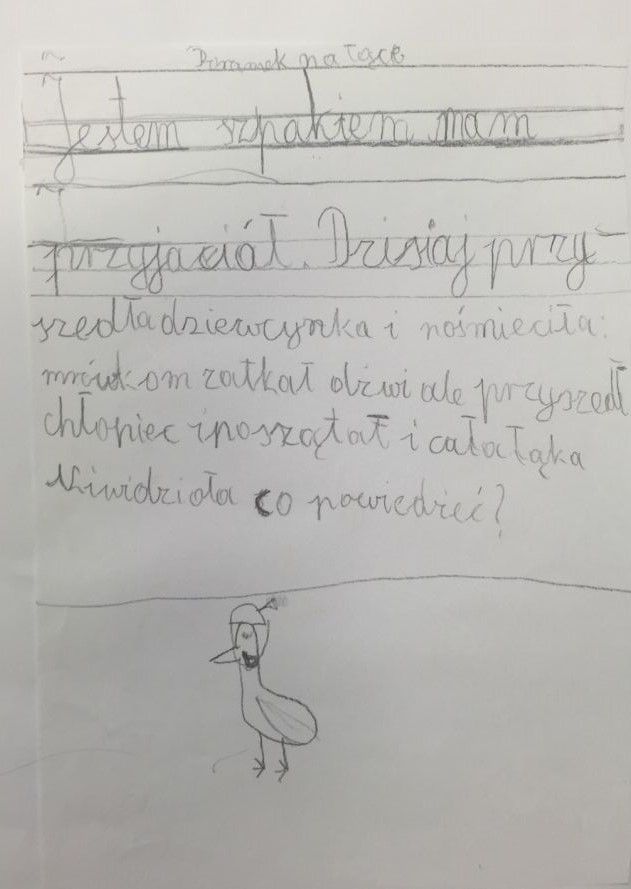 Poranek na łące
Jestem szpakiem mam
przyjaciół. Dzisiaj przy-
szedła dziewcynka i nośmieciła:
mrówkom zatkał dźwi ale przyszedł
chłopiec i poszątał i cała łąka
Niwidzioła co powiedzieć?